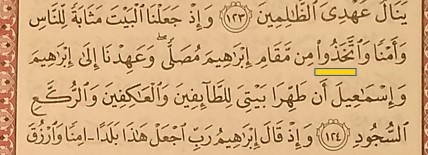 يَنَالُ عَهْدِى ٱلظَّٰلِمِينَ ﴿١٢٣﴾ وَإِذْ جَعَلْنَا ٱلْبَيْتَ مَثَابَةً لِّلنَّاسِ
وَأَمْنًا وَٱتَّخَذُوا۟ مِن مَّقَامِ إِبْرَٰهِيمَ مُصَلًّى ۖ وَعَهِدْنَا إِلَىٰ إِبْرَٰهِيمَ
وَإِسْمَٰعِيلَ أَن طَهِّرَا بَيْتِىَ لِلطَّآئِفِينَ وَٱلْعَٰكِفِينَ وَٱلرُّكَّعِ
ٱلسُّجُودِ ﴿١٢٤﴾ وَإِذْ قَالَ إِبْرَٰهِيمُ رَبِّ ٱجْعَلْ هَٰذَا بَلَدًا ءَامِنًا وَٱرْزُقْ